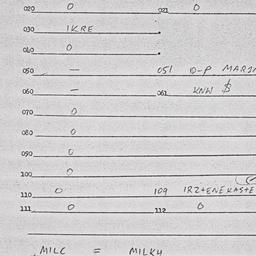 020 0 021 0
030 1KRE
040 0
050 — 051 D-P MARIN
060 — 061 KNW $
070 0
080 0
090 0
100 0
110 0 109 IRZ+ENEKASTE
111 0 112 0
MILC = MILKY